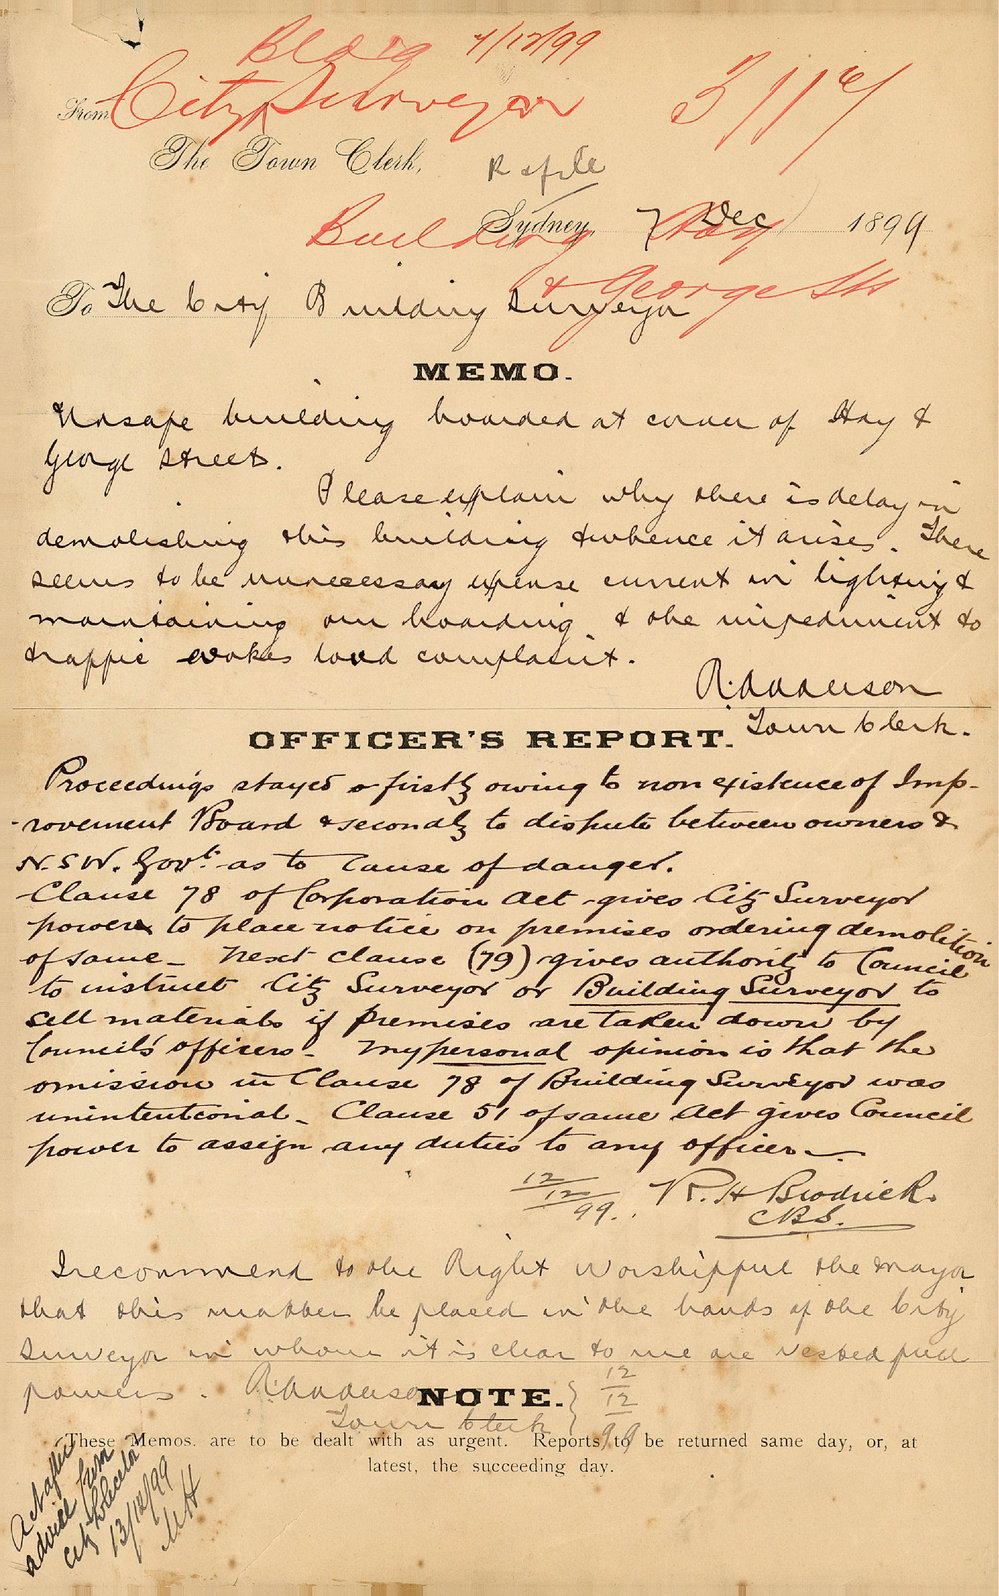 Bldg 7/12/99
City Surveyor
From
The Town Clerk,
Sydney, 7 Dec 1899
Building Hay
& George Sts
To The City Building Surveyor
MEMO.
Unsafe building hoarded at corner of Hay &
George Street.
Please explain why there is delay in
demolishing this building & whence it arises. There
seems to be unnecessary expense current in lighting &
maintaining our hoarding & the impediment to
traffic evokes loud complaint.
R. Anderson
Town Clerk.
OFFICER'S REPORT.
Proceedings stayed firstly owing to non existence of Imp-
-rovement Board & secondly to dispute between owners &
N.S.W. Govt. as to cause of danger.
Clause 78 of Corporation Act gives City Surveyor
power to place notice on premises ordering demolition
of same - Next clause (79) gives authority to Council
to instruct City Surveyor or Building Surveyor to
sell materials if premises are taken down by
Council's officers - My personal opinion is that the
omission in Clause 78 of Building Surveyor was
unintentional - Clause 51 of same Act gives Council
power to assign any duties to any officer -
12/12/99. R. H Brodrick.
C.B.S.
I recommend to the Right Worshipful the Mayor
that this matter be placed in the hands of the City
Surveyor in whom it is clear to me are vested full
powers. R. Anderson
Town Clerk } 12/12/99
NOTE.
These Memos. are to be dealt with as urgent. Reports to be returned same day, or, at
latest, the succeeding day.
Act after
advice from
City Solicitor
13/12/99